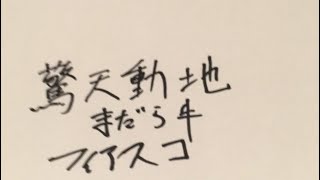 驚天動地
まだら牛
フィアスコ